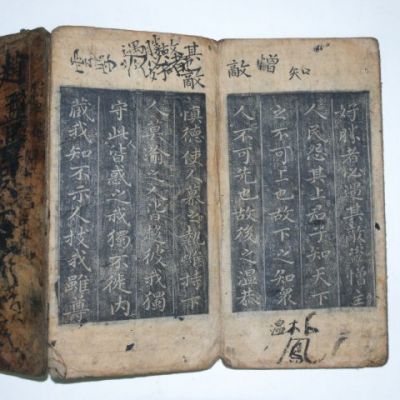 知
憎
敵
好勝者必遇其敵憎主
人民怨其上君子知天下
之不可上也故下之知衆
人不可先也故後之溫恭
溫
鳳
其敵
慎德使人慕之執雌持下
人莫踰之人皆趨彼我獨
守此皆惑之我獨不徙內
藏我知不示人技我雖尊